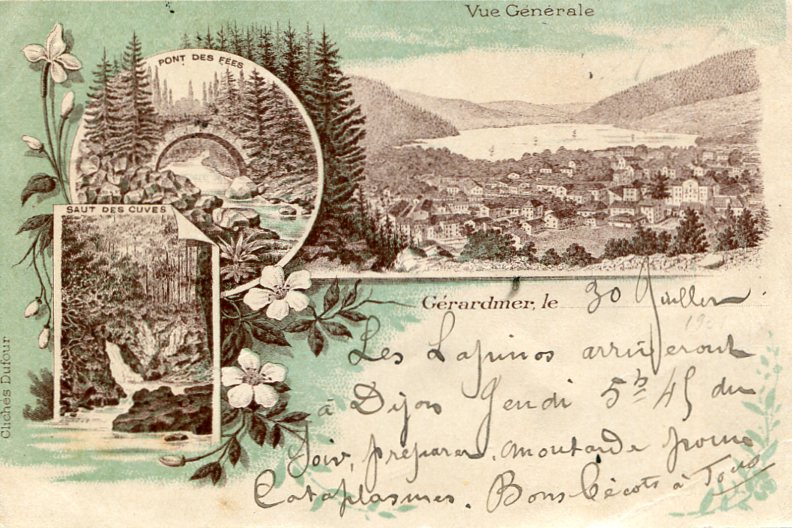 Vue Générale
PONT DES FÉES
SAUT DES CUVES
Clichés Dufour
Gérardmer, le 30 Juillet
Les Lapinos arriveront
à Dijon Jeudi 5h 45 du
Soir, préparer moutarde pour
Cataplasmes. Bons bécots à Tous